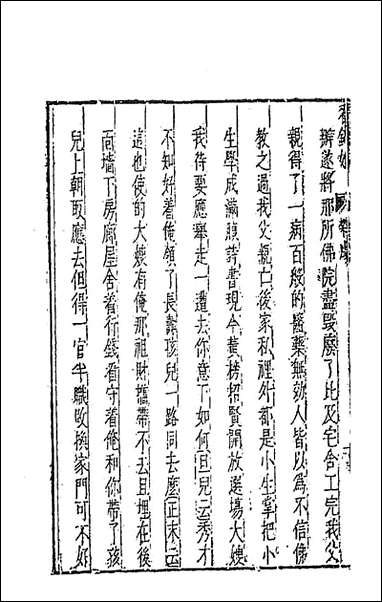 看錢奴 雜劇
辨遂將那所佛院盡毀廢了比及宅舍工完我父
親得了一病百般的醫藥無效人皆以為不信佛
教之過我父親亡後家私裡外都是小生掌把小
生學成滿腹詩書現今黃榜招賢開放選場大嫂
我待要應舉走一遭去你意下如何旦兒云秀才
不知好着俺領了長壽孩兒一路同去麽正末云
這也使的大嫂有俺那祖財攜帶不去且埋在後
面墻下房廊屋舍着行錢看守着俺和你帶了孩
兒上朝取應去但得一官半職改換家門可不好